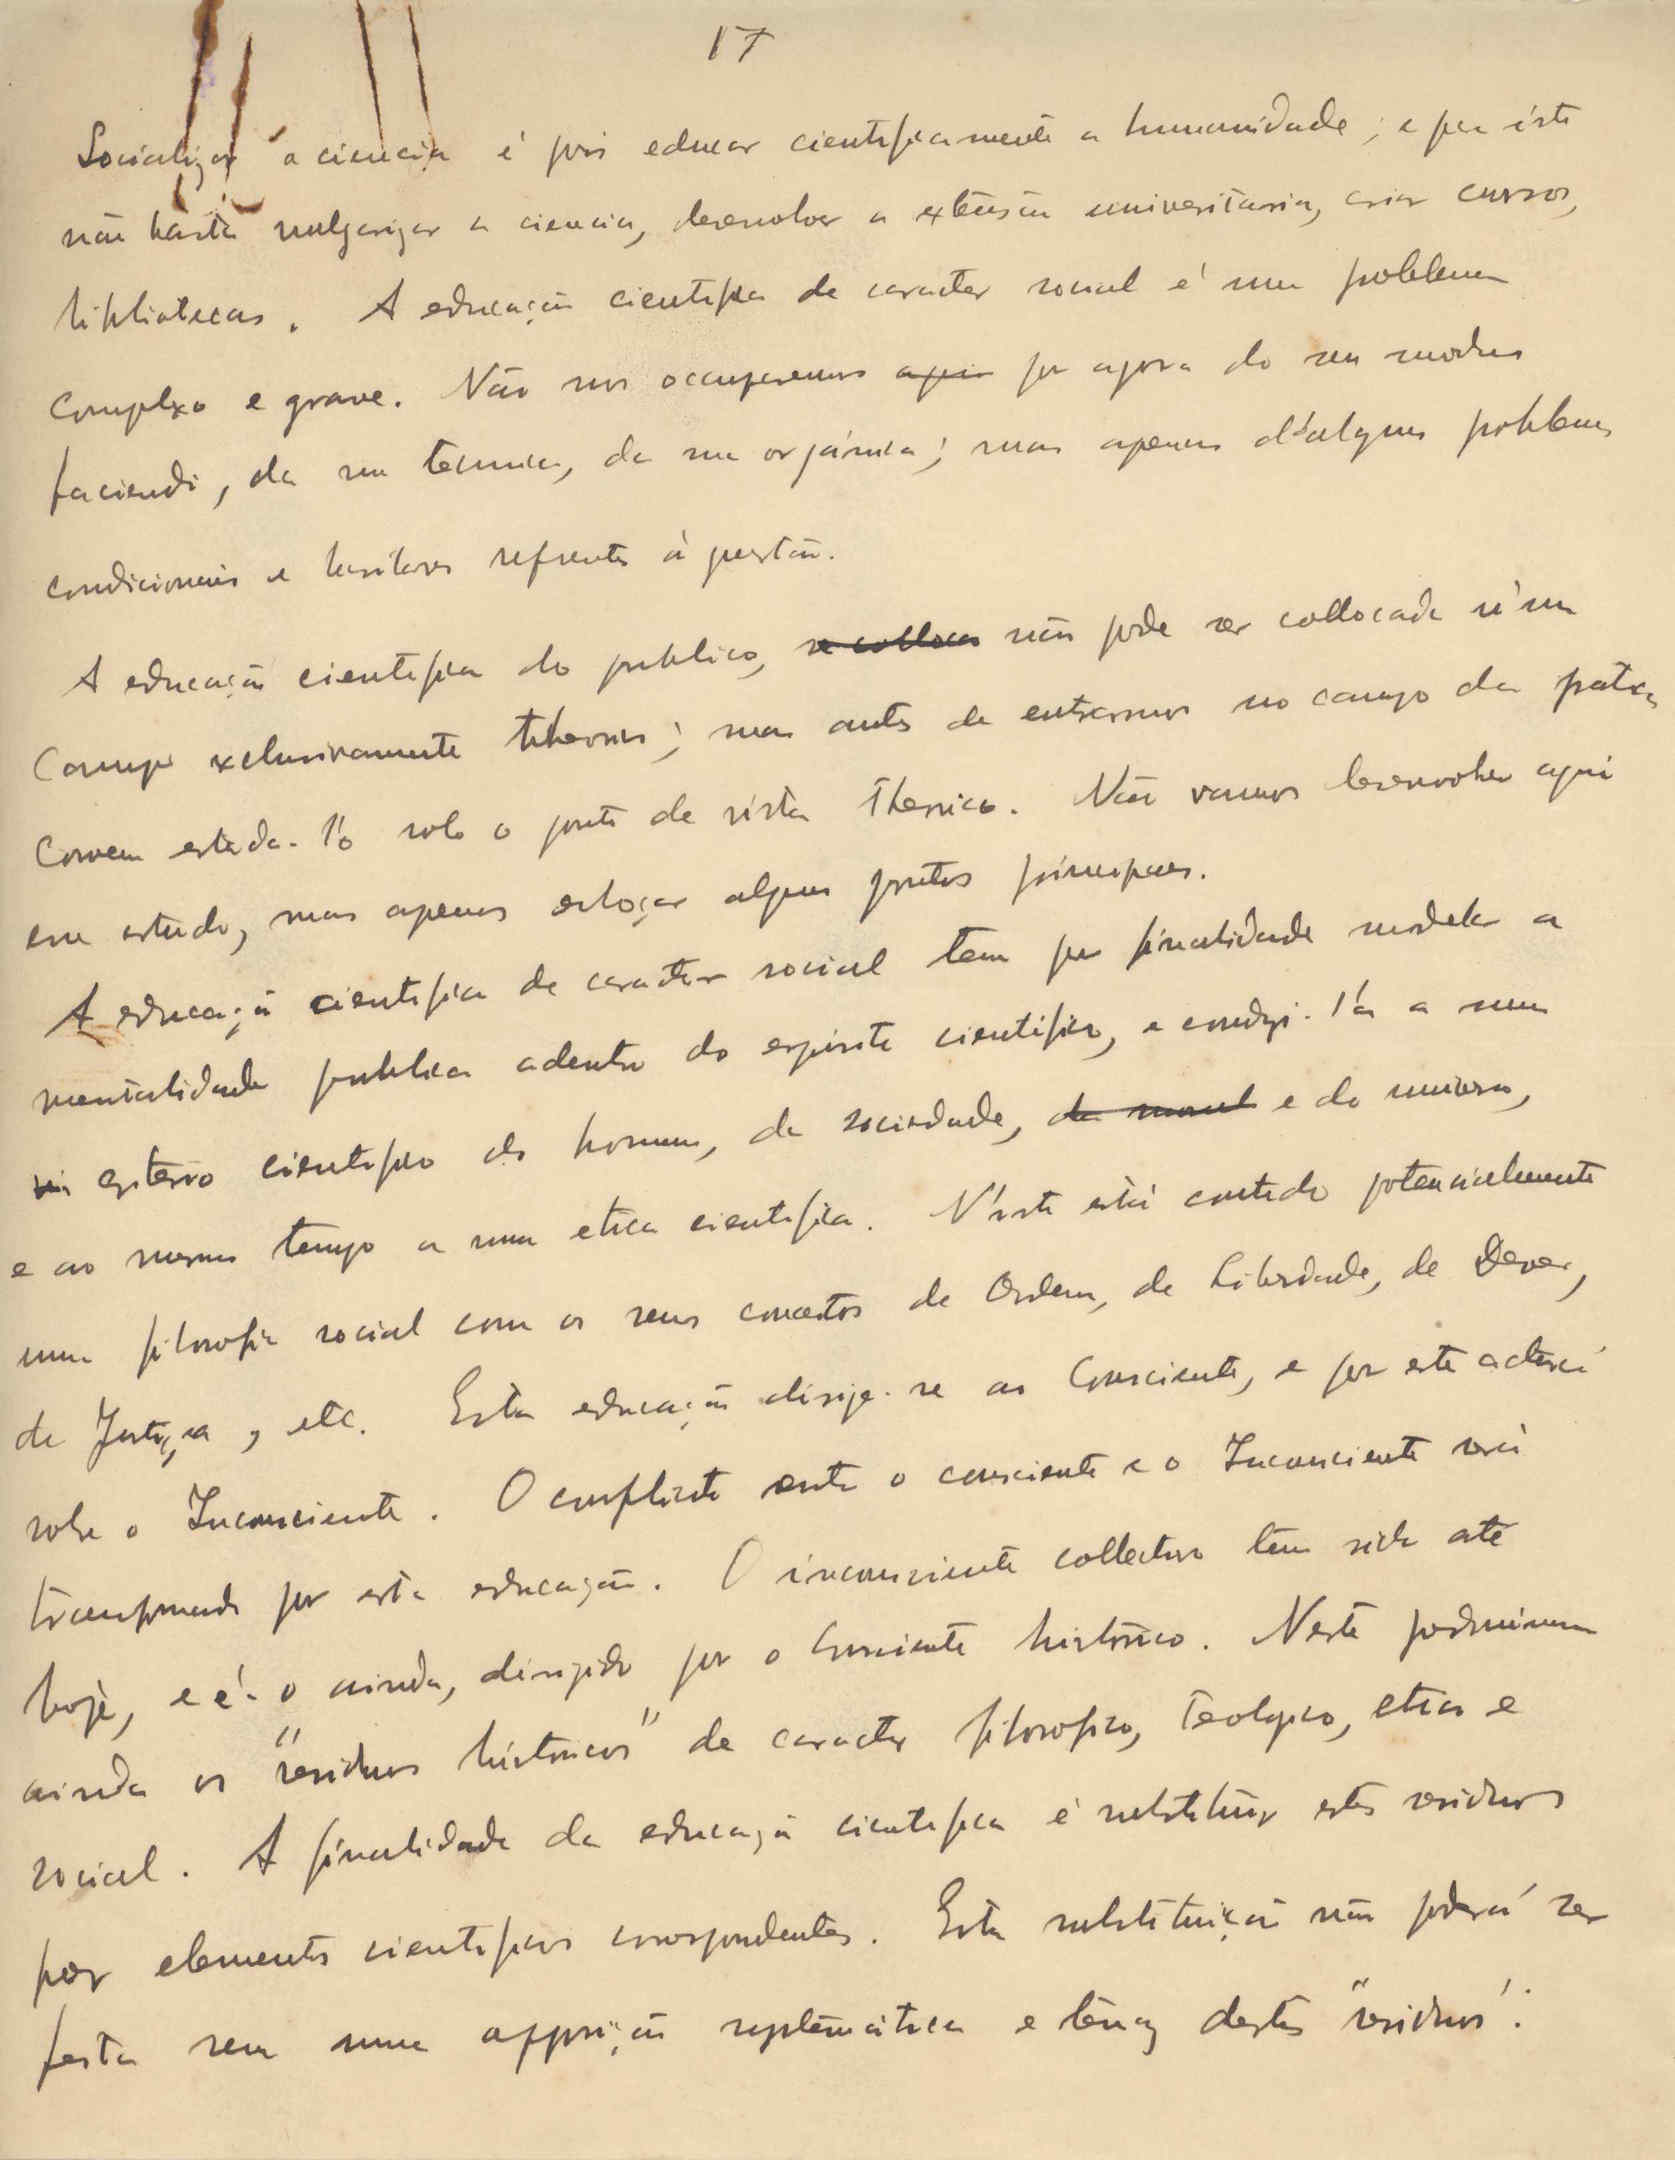 17
Socializar a ciencia é pois educar cientificamente a humanidade; e para isto
não basta vulgarizar a ciencia, desenvolver a extensão universitaria, criar cursos,
bibliotecas. A educação cientifica de caracter social é um problema
complexo e grave. Não nos occuparemos aqui por agora do seu modus
faciendi, da sua tecnica, da sua orgánica; mas apenas d'alguns problemas
condicionais e basilares referentes á questão.
A educação cientifica do publico, se colloca não pode ser collocada n'um
campo exclusivamente theorico; mas antes de entrarmos no campo da pratica
convem estuda-la sob o ponto de vista theorico. Não vamos desenvolver aqui
esse estudo, mas apenas esboçar alguns pontos principaes.
A educação cientifica de caracter social tem por finalidade modelar a
mentalidade publica adentro do espirito cientifico, e conduzi-la a uma
criterio cientifico do homem, da sociedade, da moral e do universo,
e ao mesmo tempo a uma etica cientifica. N'isto está contido potencialmente
uma filosofia social com os seus conceitos de Ordem, de Liberdade, de Dever,
de Justiça, etc. Esta educação dirije-se ao Consciente, e por este actuará
sobre o Inconsciente. O conflicto entre o consciente e o Inconsciente será
transformado por esta educação. O inconsciente collectivo tem sido até
hoje, e é-o ainda, dirigido por o Consciente historico. Neste predominam
ainda os "residuos historicos" de caracter filosofico, teologico, etico e
social. A finalidade da educação cientifica é substituir estes residuos
por elementos cientificos correspondentes. Esta substituição não poderá ser
feita sem uma opposição systematica e tenaz destes "residuos".